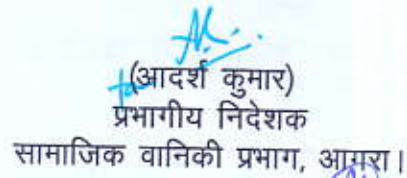 (आदर्श कुमार)
प्रभागीय निदेशक
सामाजिक वानिकी प्रभाग, आगरा।